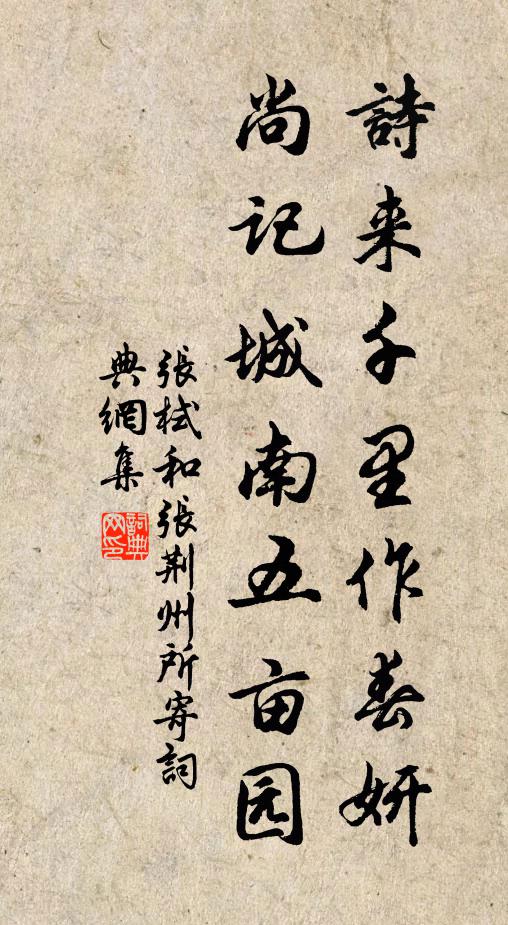 詩来千里作春妍
尚记城南五亩园
張栻和張荆州所寄詞
典網集
詞典网印